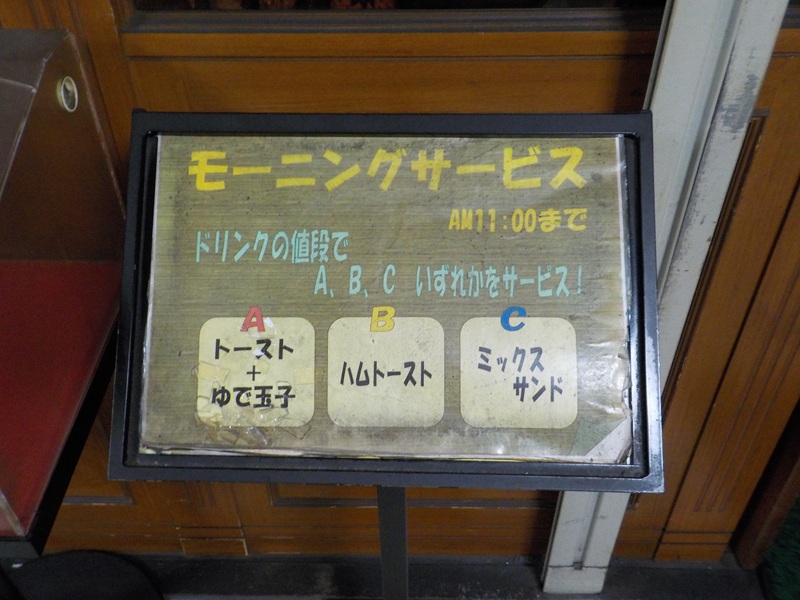 モーニングサービス
AM11:00まで
ドリンクの値段で
A、B、C いずれかをサービス!
A
トースト
+
ゆで玉子
B
ハムトースト
C
ミックス
サンド